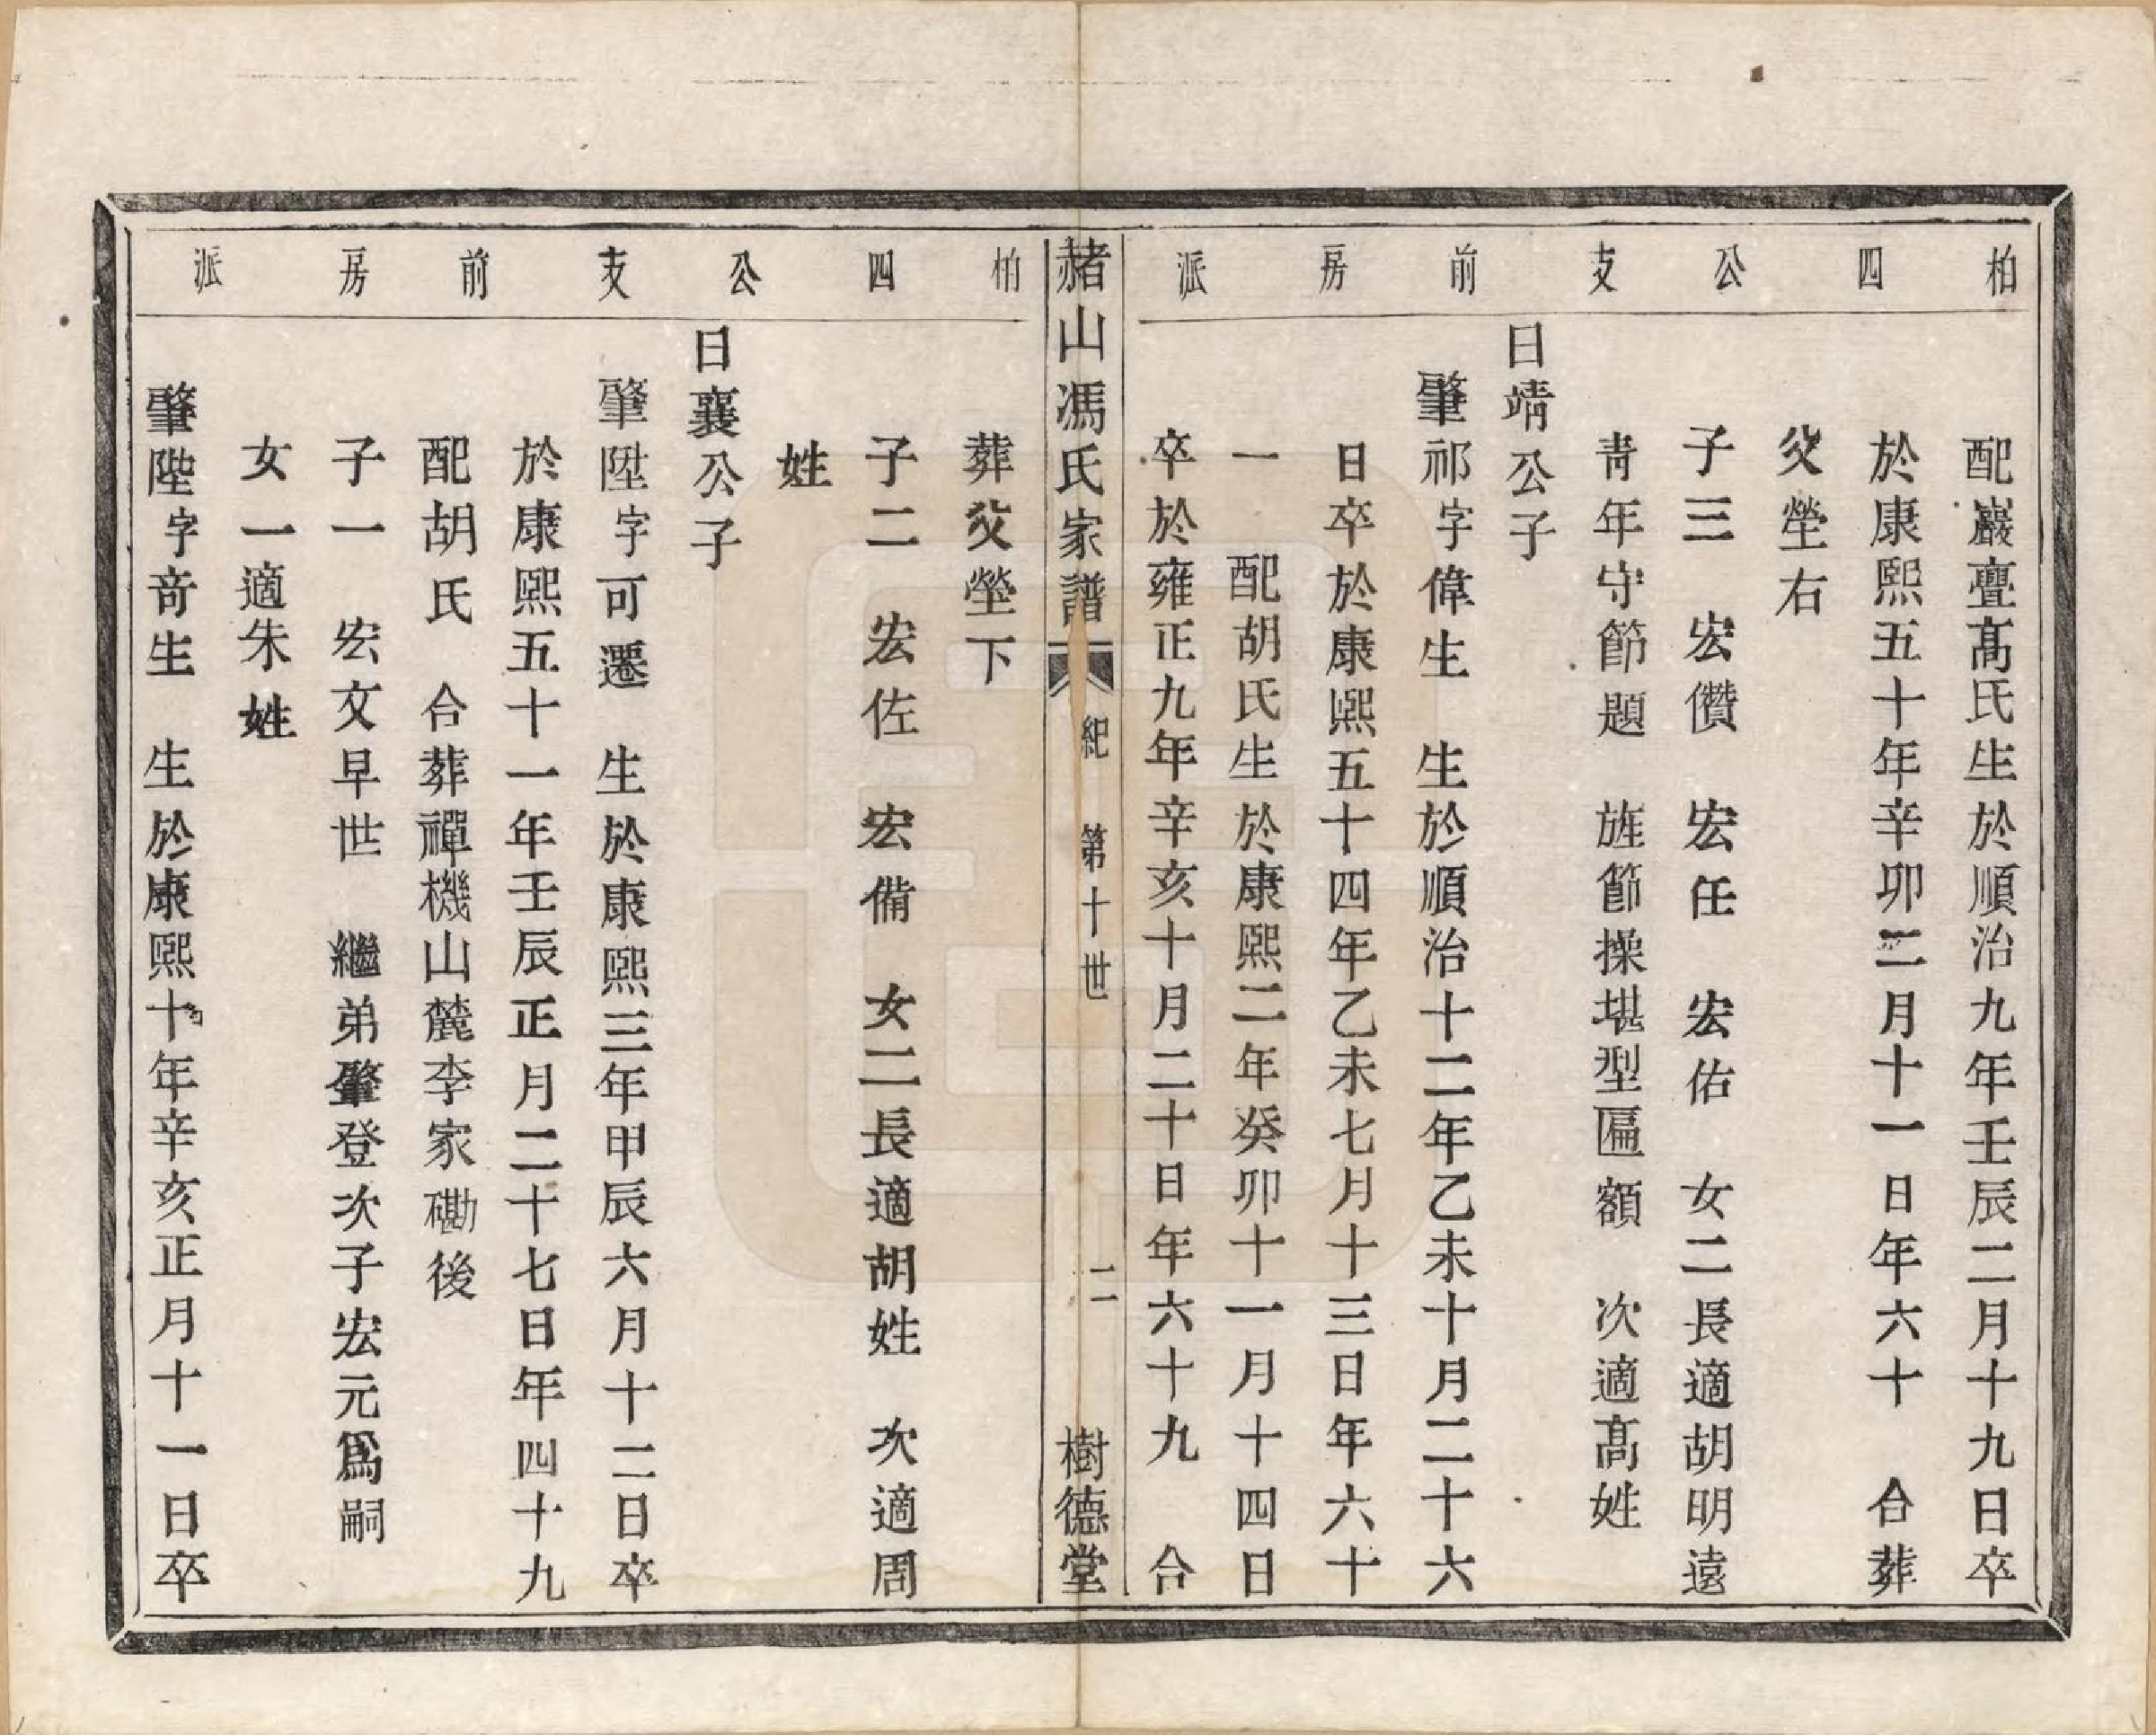 柏四公支前房派
配巖亹高氏生於順治九年壬辰二月十九日卒
於康熙五十年辛卯二月十一日年六十　合葬
父塋右
子三　宏儹　宏任　宏佑　女二長適胡明遠
青年守節題　旌節操堪型匾額　次適高姓
日靖公子
肇祁字偉生　生於順治十二年乙未十月二十六
日卒於康熙五十四年乙未七月十三日年六十
一　配胡氏生於康熙二年癸卯十一月十四日
卒於雍正九年辛亥十月二十日年六十九　合
赭山馮氏家譜　紀　第十世　二　樹德堂
柏四公支前房派
葬父塋下
子二　宏佐　宏備　女二長適胡姓　次適周
姓
日襄公子
肇陞字可遷　生於康熙三年甲辰六月十二日卒
於康熙五十一年壬辰正月二十七日年四十九
配胡氏　合葬禪機山麓李家磡後
子一　宏文早世　繼弟肇登次子宏元爲嗣
女一適朱姓
肇陛字奇生　生於康熙十年辛亥正月十一日卒